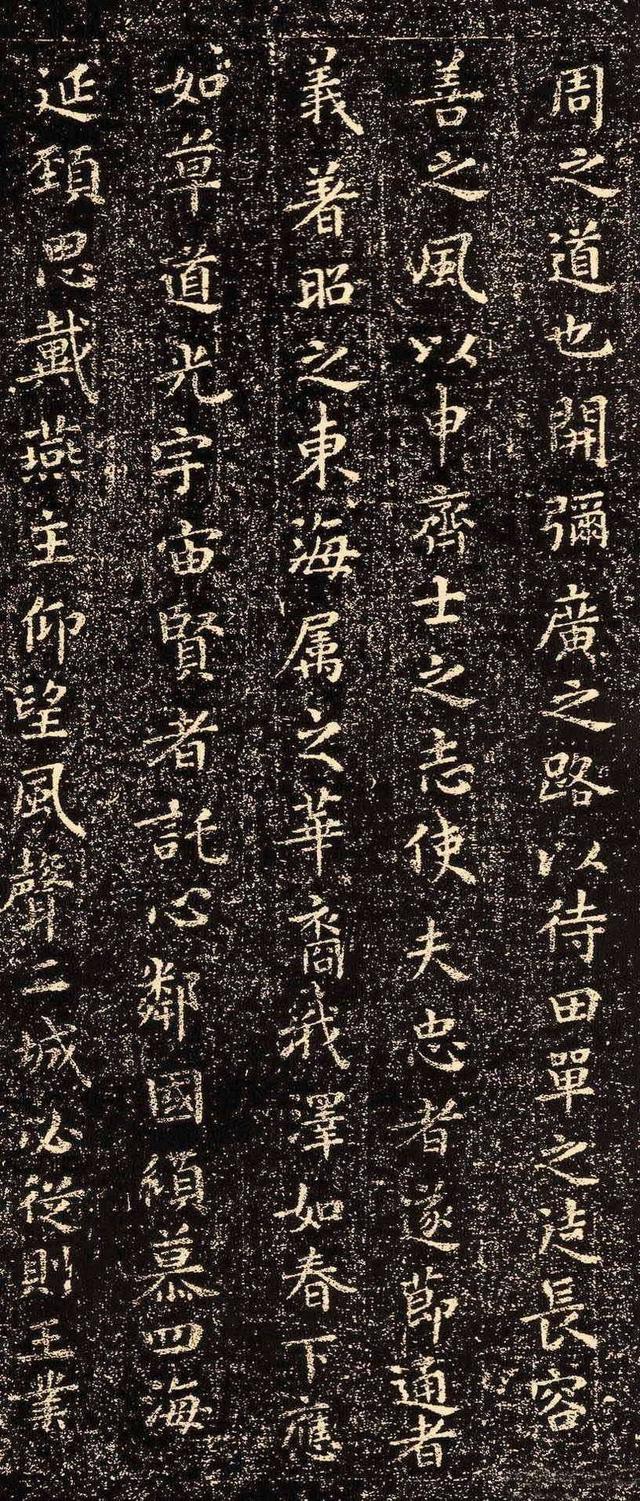 周之道也開彌廣之路以待田單之徒長容
善之風以申齊士之志使夫忠者遂節通者
義著昭之東海属之華裔我澤如春下應
如草道光宇宙賢者託心鄰國傾慕四海
延頚思戴燕主仰望風聲二城必從則王業